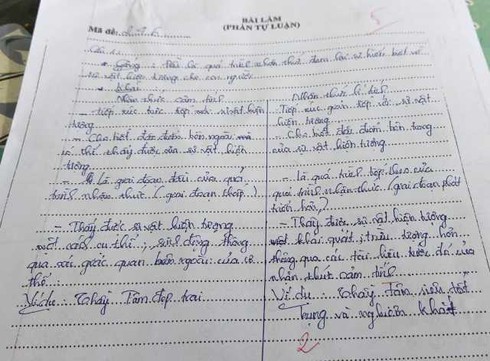 BÀI LÀM
(PHẦN TỰ LUẬN)
Mã đề:
5
Câu
Giống : Đều là quá trình nhận thức đem lại sự hiểu biết về
sự vật hiện tượng cho con người
Khác :
Nhận thức cảm tính
- Tiếp xúc trực tiếp với sự vật hiện
tượng
- Cho biết đặc điểm bên ngoài mà
có thể thấy được của sự vật hiện
tượng
- Là giai đoạn đầu của quá
trình nhận thức (giai đoạn thấp)
- Thấy được sự vật hiện tượng
một cách cụ thể, sinh động thông
qua các giác quan bên ngoài của cơ
thể
Ví dụ : Thầy Tâm đẹp trai
Nhận thức lí tính
Tiếp xúc gián tiếp với sự vật
hiện tượng
- Cho biết đặc điểm bên trong
của sự vật hiện tượng
- Là quá trình tiếp theo của
quá trình nhận thức (giai đoạn phát
triển)
- Thấy được sự vật hiện tượng
một khái quát, trừu tượng hơn
thông qua các tài liệu trước đó của
nhận thức cảm tính
Ví dụ : Thầy tâm siêu tốt
bụng và nghiêm khắc
2